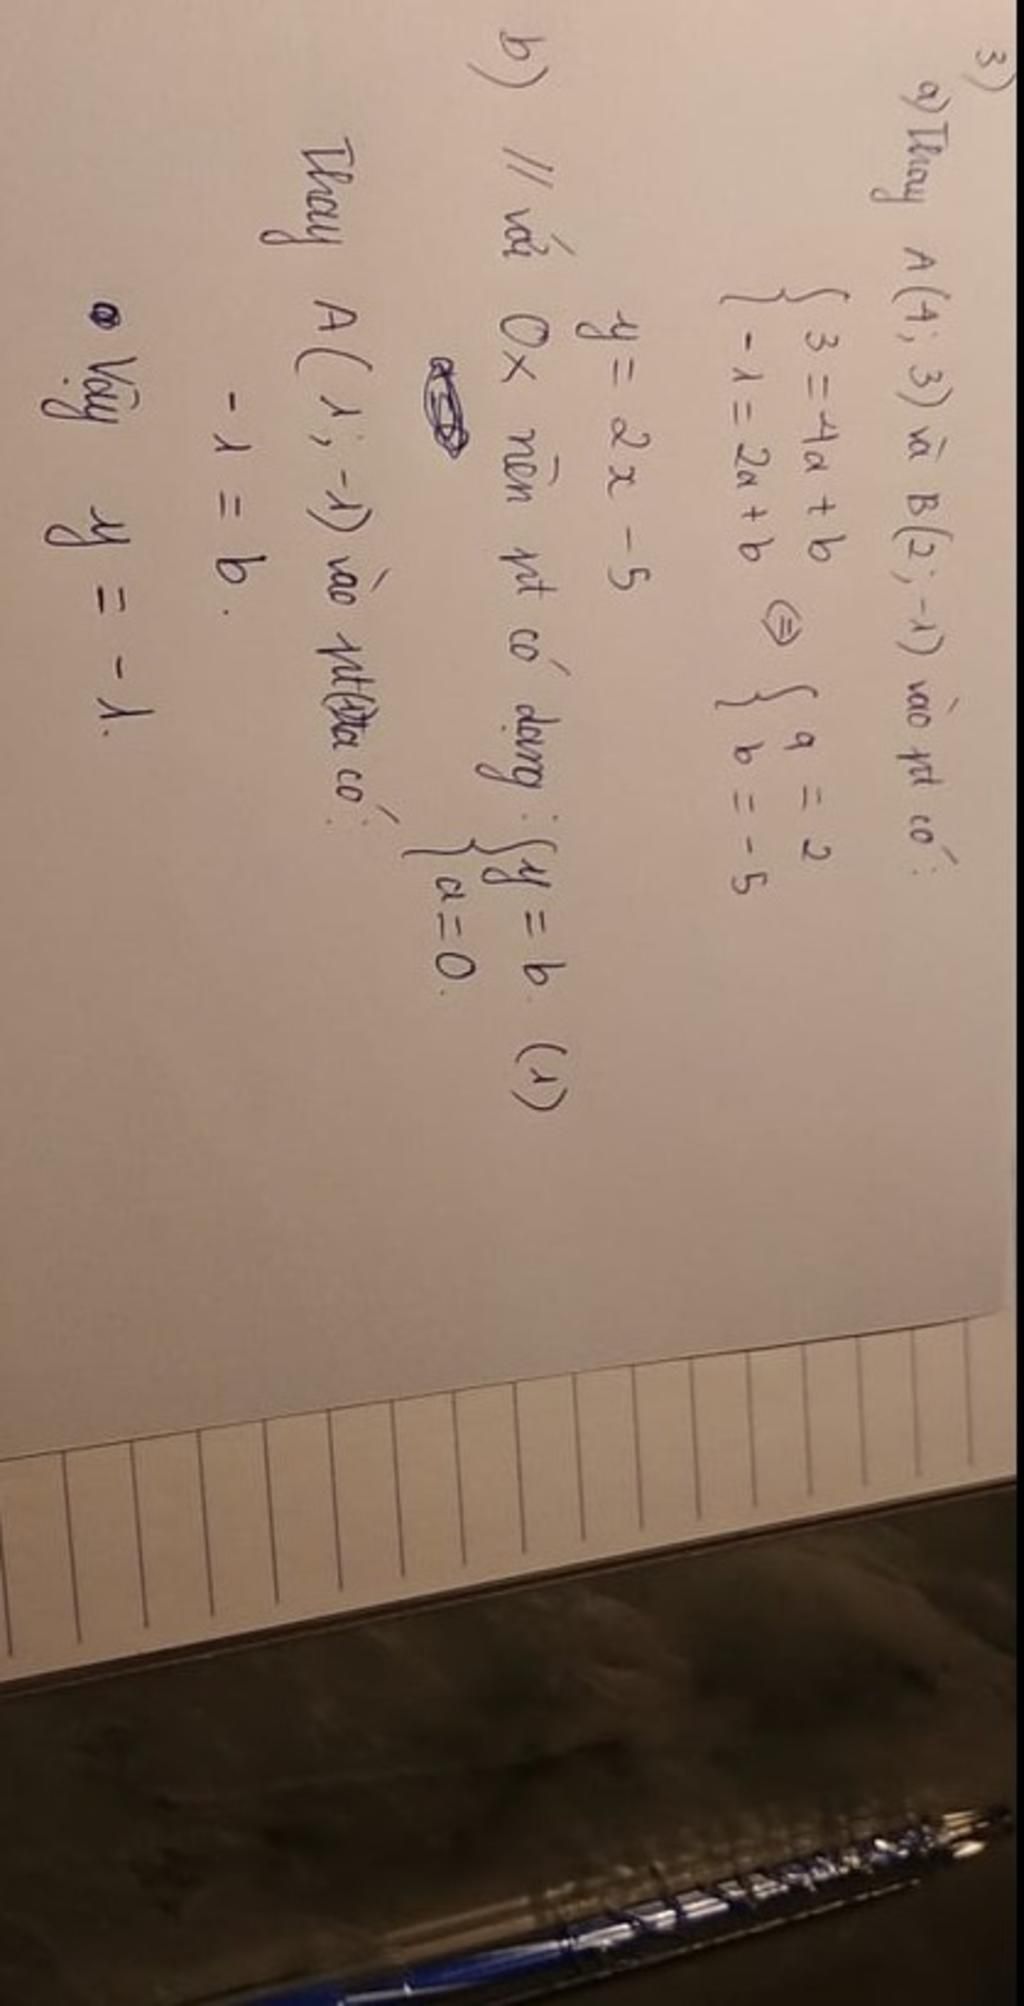 3)
a) Thay A(4; 3) và B(2; -1) vào pt có:
{ 3 = 4a + b
{ -1 = 2a + b ⇔ { a = 2
{ b = -5
y = 2x - 5
b) // với Ox nên pt có dạng: { y = b (1)
{ a = 0.
Thay A(1; -1) vào pt(1) ta có:
-1 = b.
Vậy y = -1.